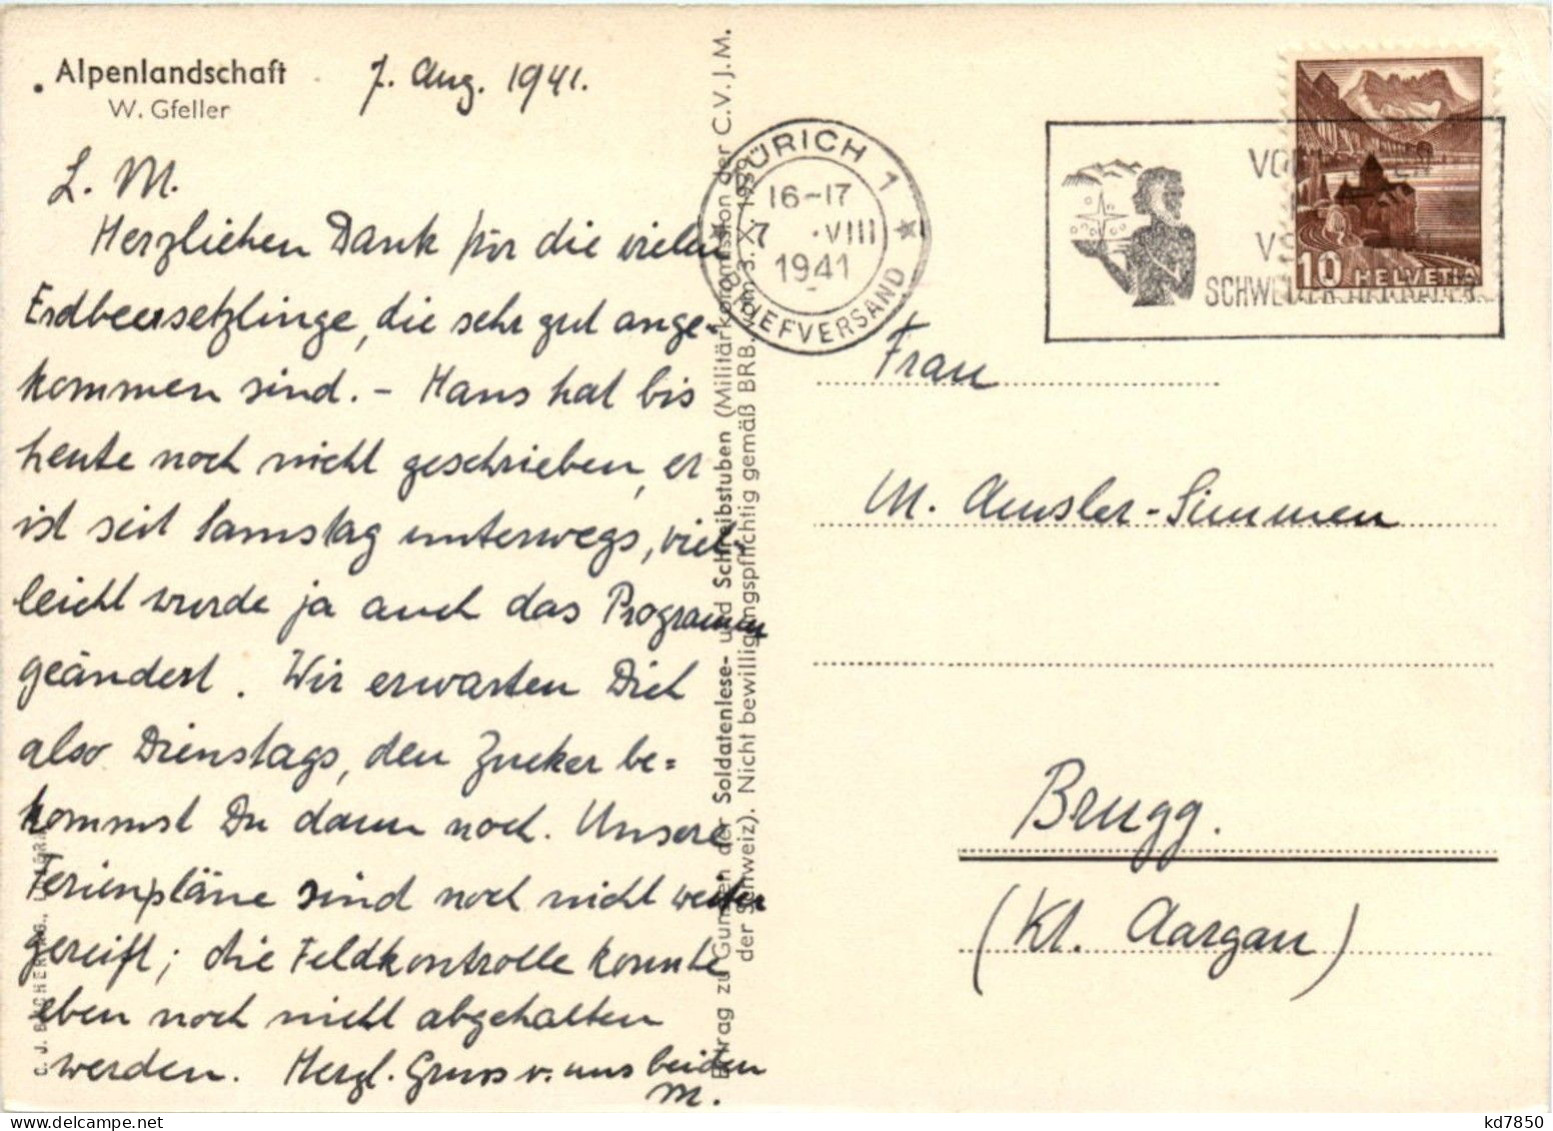 Alpenlandschaft
W. Gfeller
7. Aug. 1941.
L. M.
Herzlichen Dank für die vielen
Erdbeersetzlinge, die sehr gut ange-
kommen sind. - Hans hat bis
heute noch nicht geschrieben, er
ist seit Samstag unterwegs, viel-
leicht wurde ja auch das Programm
geändert. Wir erwarten Dich
also Dienstags, den Zucker be=
kommst Du dann noch. Unsere
Ferienpläne sind noch nicht weiter
gereift; die Feldkontrolle konnte
eben noch nicht abgehalten
werden. Herzl. Gruss v. uns beiden
M.
C. J. BUCHER
Ertrag zu Gunsten der Soldatenlese- und Schreibstuben (Militärkommission der C. V. J. M.
der Schweiz). Nicht bewilligungspflichtig gemäß BRB. vom 3. X. 1939
ZÜRICH 1
16-17
7 ·VIII
1941
BRIEFVERSAND
SCHWEIZER
10 HELVETIA
Frau
M. Amsler-Simmen
Brugg.
(Kt. Aargau)
kd7850